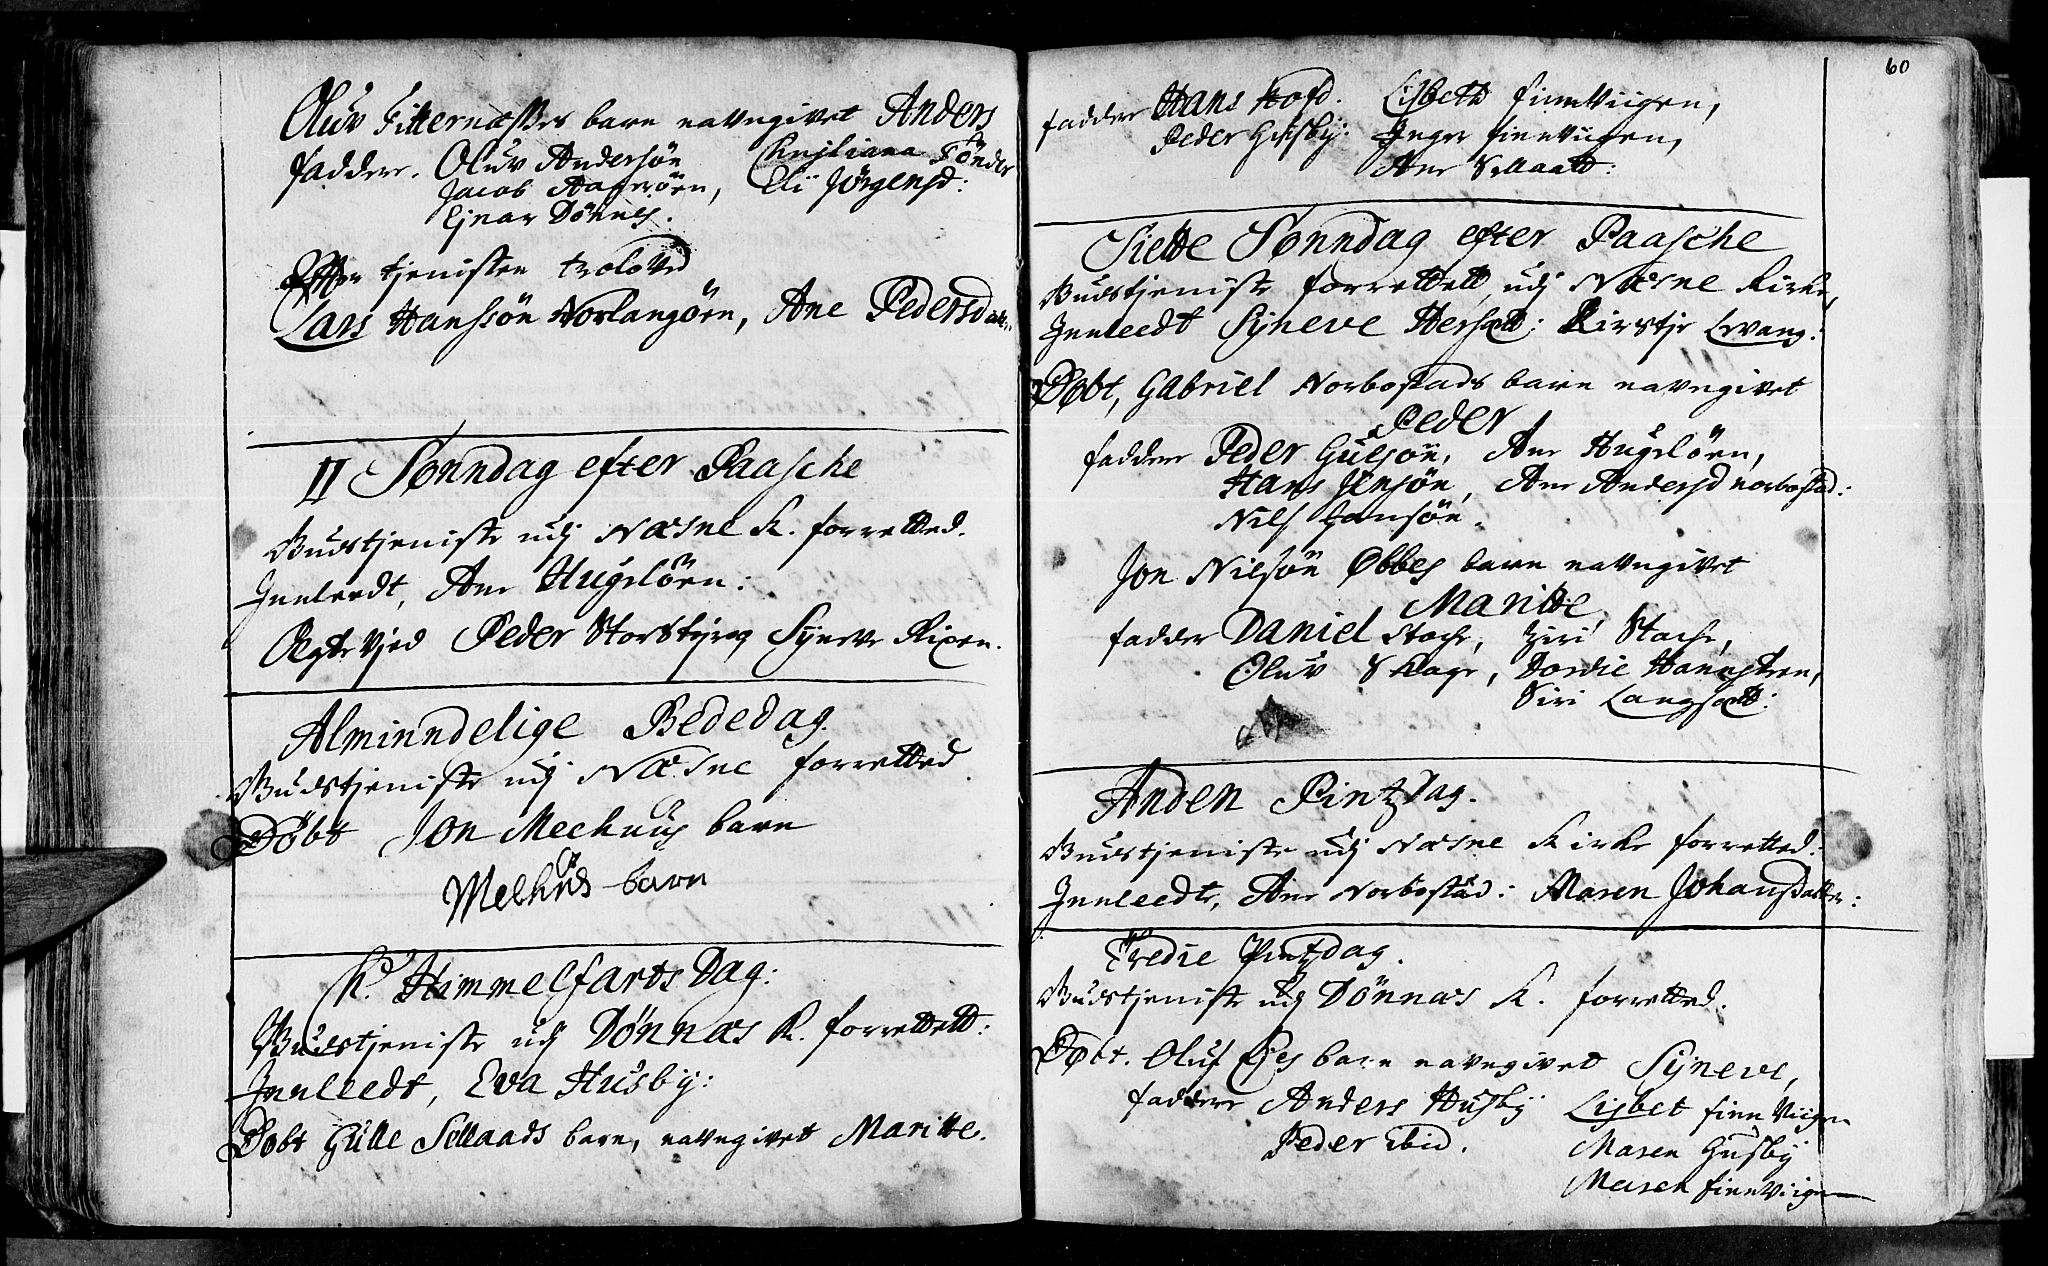 Oluv Fitternæsses barn navngivet Anders
faddere. Oluv Andersøn Christiana Tønder
Jacob Aagerøen, Eli Jørgensd:
Ejnar Dønnes.
Efter tjenisten trolovd
Lars Hanssøn Norlangøen, Ane Pedersdatt.
II Sonndag efter Paasche
Gudstjeniste udj Næsne K. forretted.
Innleedt, Ane Hugeløen:
Ægtevied Peder Storstyreg Syneve Rixen.
Alminndelige Bededag.
Gudstjeniste udj Næsne forretted
Døbt Jon Mechuus barn
Melhuus barn
Xi Himmelfarts Dag:
Gudstjeniste udj Dønnæs K. forrettett:
Innleedt, Eva Husby:
Døbt Gulle Sellaads barn, navngivet Maritte.
60
faddere Hans Hofd. Lisbeth finnViigen,
Peder Husby: Inger finnViigen,
Ane Sellaatd:
Siette Sonndag efter Paasche
Gudstjeniste forrettett, udj Næsne Kirke,
Innleedt Syneve Hersætt: Kirstje Levang:
Døbt, Gabriel Norbostads barn navngivet
Peder
faddere Peder Gulsøn, Ane Hugeløen,
Hans Jensøn, Ane Andersd norbostad:
Nils Hansøn.
Jon Nilsøn Øbbes barn navngivet
Maritte,
fadder Daniel Stoche, Ziri Stache,
Oluv Schage, Dordie Hannestren,
Siri Langsætt:
Anden Pintzdag.
Gudstjeniste udj Næsne Kirke forretted:
Innleedte, Ane Norbostad: Maren Johansdatter:
Tredie Pintzdag.
Gudstjeniste udj Dønnæs K. forretted.
Døbt. Oluf Ejes barn navngivet Syneve,
faddere Anders Husby Lisbet finnViigen
Peder Ibid. Maren Husby
Maren finnViigen